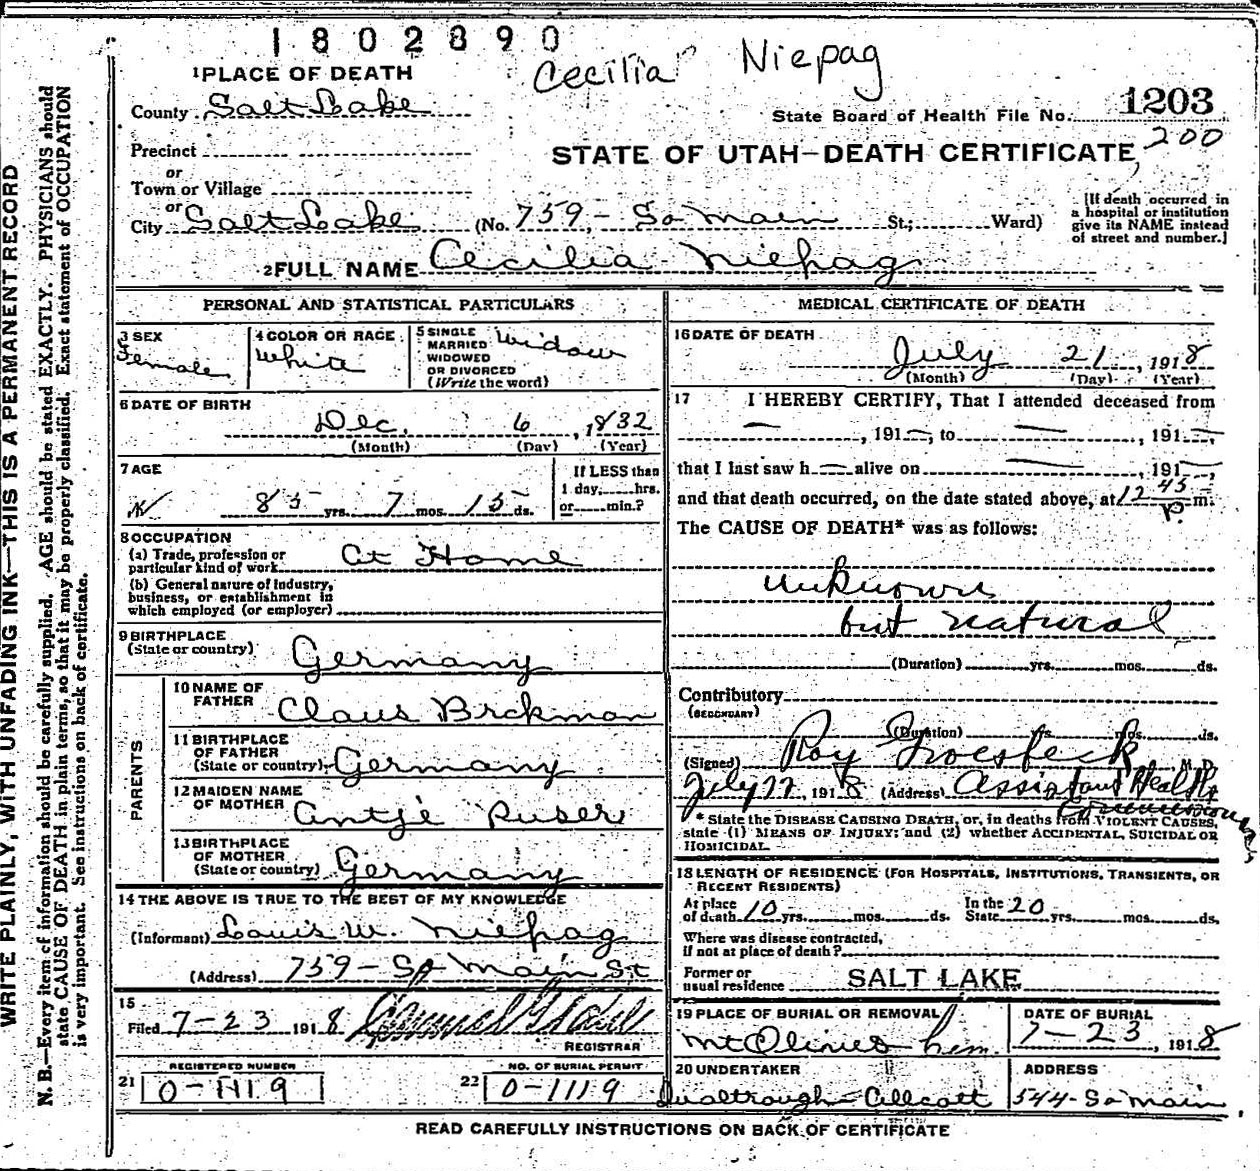 1802890
Cecilia Niepag
1 PLACE OF DEATH
County Salt Lake
State Board of Health File No. 1203
200
Precinct
STATE OF UTAH—DEATH CERTIFICATE
or
Town or Village
or
City Salt Lake (No. 759 - So Main St; Ward)
[If death occurred in a hospital or institution give its NAME instead of street and number.]
2 FULL NAME Cecilia Niepag
PERSONAL AND STATISTICAL PARTICULARS
3 SEX Female
4 COLOR OR RACE White
5 SINGLE MARRIED WIDOWED OR DIVORCED (Write the word) Widow
6 DATE OF BIRTH
Dec. 6, 1832
(Month) (Day) (Year)
7 AGE
85 yrs. 7 mos. 15 ds.
If LESS than 1 day, hrs. or min.?
8 OCCUPATION
(a) Trade, profession or particular kind of work At Home
(b) General nature of Industry, business, or establishment in which employed (or employer)
9 BIRTHPLACE (State or country) Germany
PARENTS
10 NAME OF FATHER Claus Brckman
11 BIRTHPLACE OF FATHER (State or country) Germany
12 MAIDEN NAME OF MOTHER Antje Ruser
13 BIRTHPLACE OF MOTHER (State or country) Germany
14 THE ABOVE IS TRUE TO THE BEST OF MY KNOWLEDGE
(Informant) Louis W. Niepag
(Address) 759 - So Main St
15
Filed 7-23 1918
REGISTRAR
REGISTERED NUMBER
21 O-1119
NO. OF BURIAL PERMIT
22 O-1119
MEDICAL CERTIFICATE OF DEATH
16 DATE OF DEATH
July 21, 1918
(Month) (Day) (Year)
17 I HEREBY CERTIFY, That I attended deceased from
— , 191—, to — , 191—,
that I last saw h— alive on — , 191—,
and that death occurred, on the date stated above, at 12 45 P. m.
The CAUSE OF DEATH* was as follows:
unknown
but natural
(Duration) yrs. mos. ds.
Contributory
(SECONDARY)
(Duration) yrs. mos. ds.
(Signed) Roy Groesbeck M. D.
July 22, 1918 (Address) Assistant Health
Commissioner
* State the DISEASE CAUSING DEATH, or, in deaths from VIOLENT CAUSES,
state (1) MEANS OF INJURY; and (2) whether ACCIDENTAL, SUICIDAL OR
HOMICIDAL.
18 LENGTH OF RESIDENCE (FOR HOSPITALS, INSTITUTIONS, TRANSIENTS, OR
RECENT RESIDENTS)
At place of death 10 yrs. mos. ds. In the State 20 yrs. mos. ds.
Where was disease contracted,
if not at place of death?
Former or usual residence SALT LAKE
19 PLACE OF BURIAL OR REMOVAL
Mt Olivet Cem.
DATE OF BURIAL
7-23, 1918
20 UNDERTAKER
ADDRESS
544 - So Main
READ CAREFULLY INSTRUCTIONS ON BACK OF CERTIFICATE
WRITE PLAINLY, WITH UNFADING INK—THIS IS A PERMANENT RECORD
N. B.—Every item of information should be carefully supplied. AGE should be stated EXACTLY. PHYSICIANS should
state CAUSE OF DEATH in plain terms, so that it may be properly classified. Exact statement of OCCUPATION
is very important. See instructions on back of certificate.